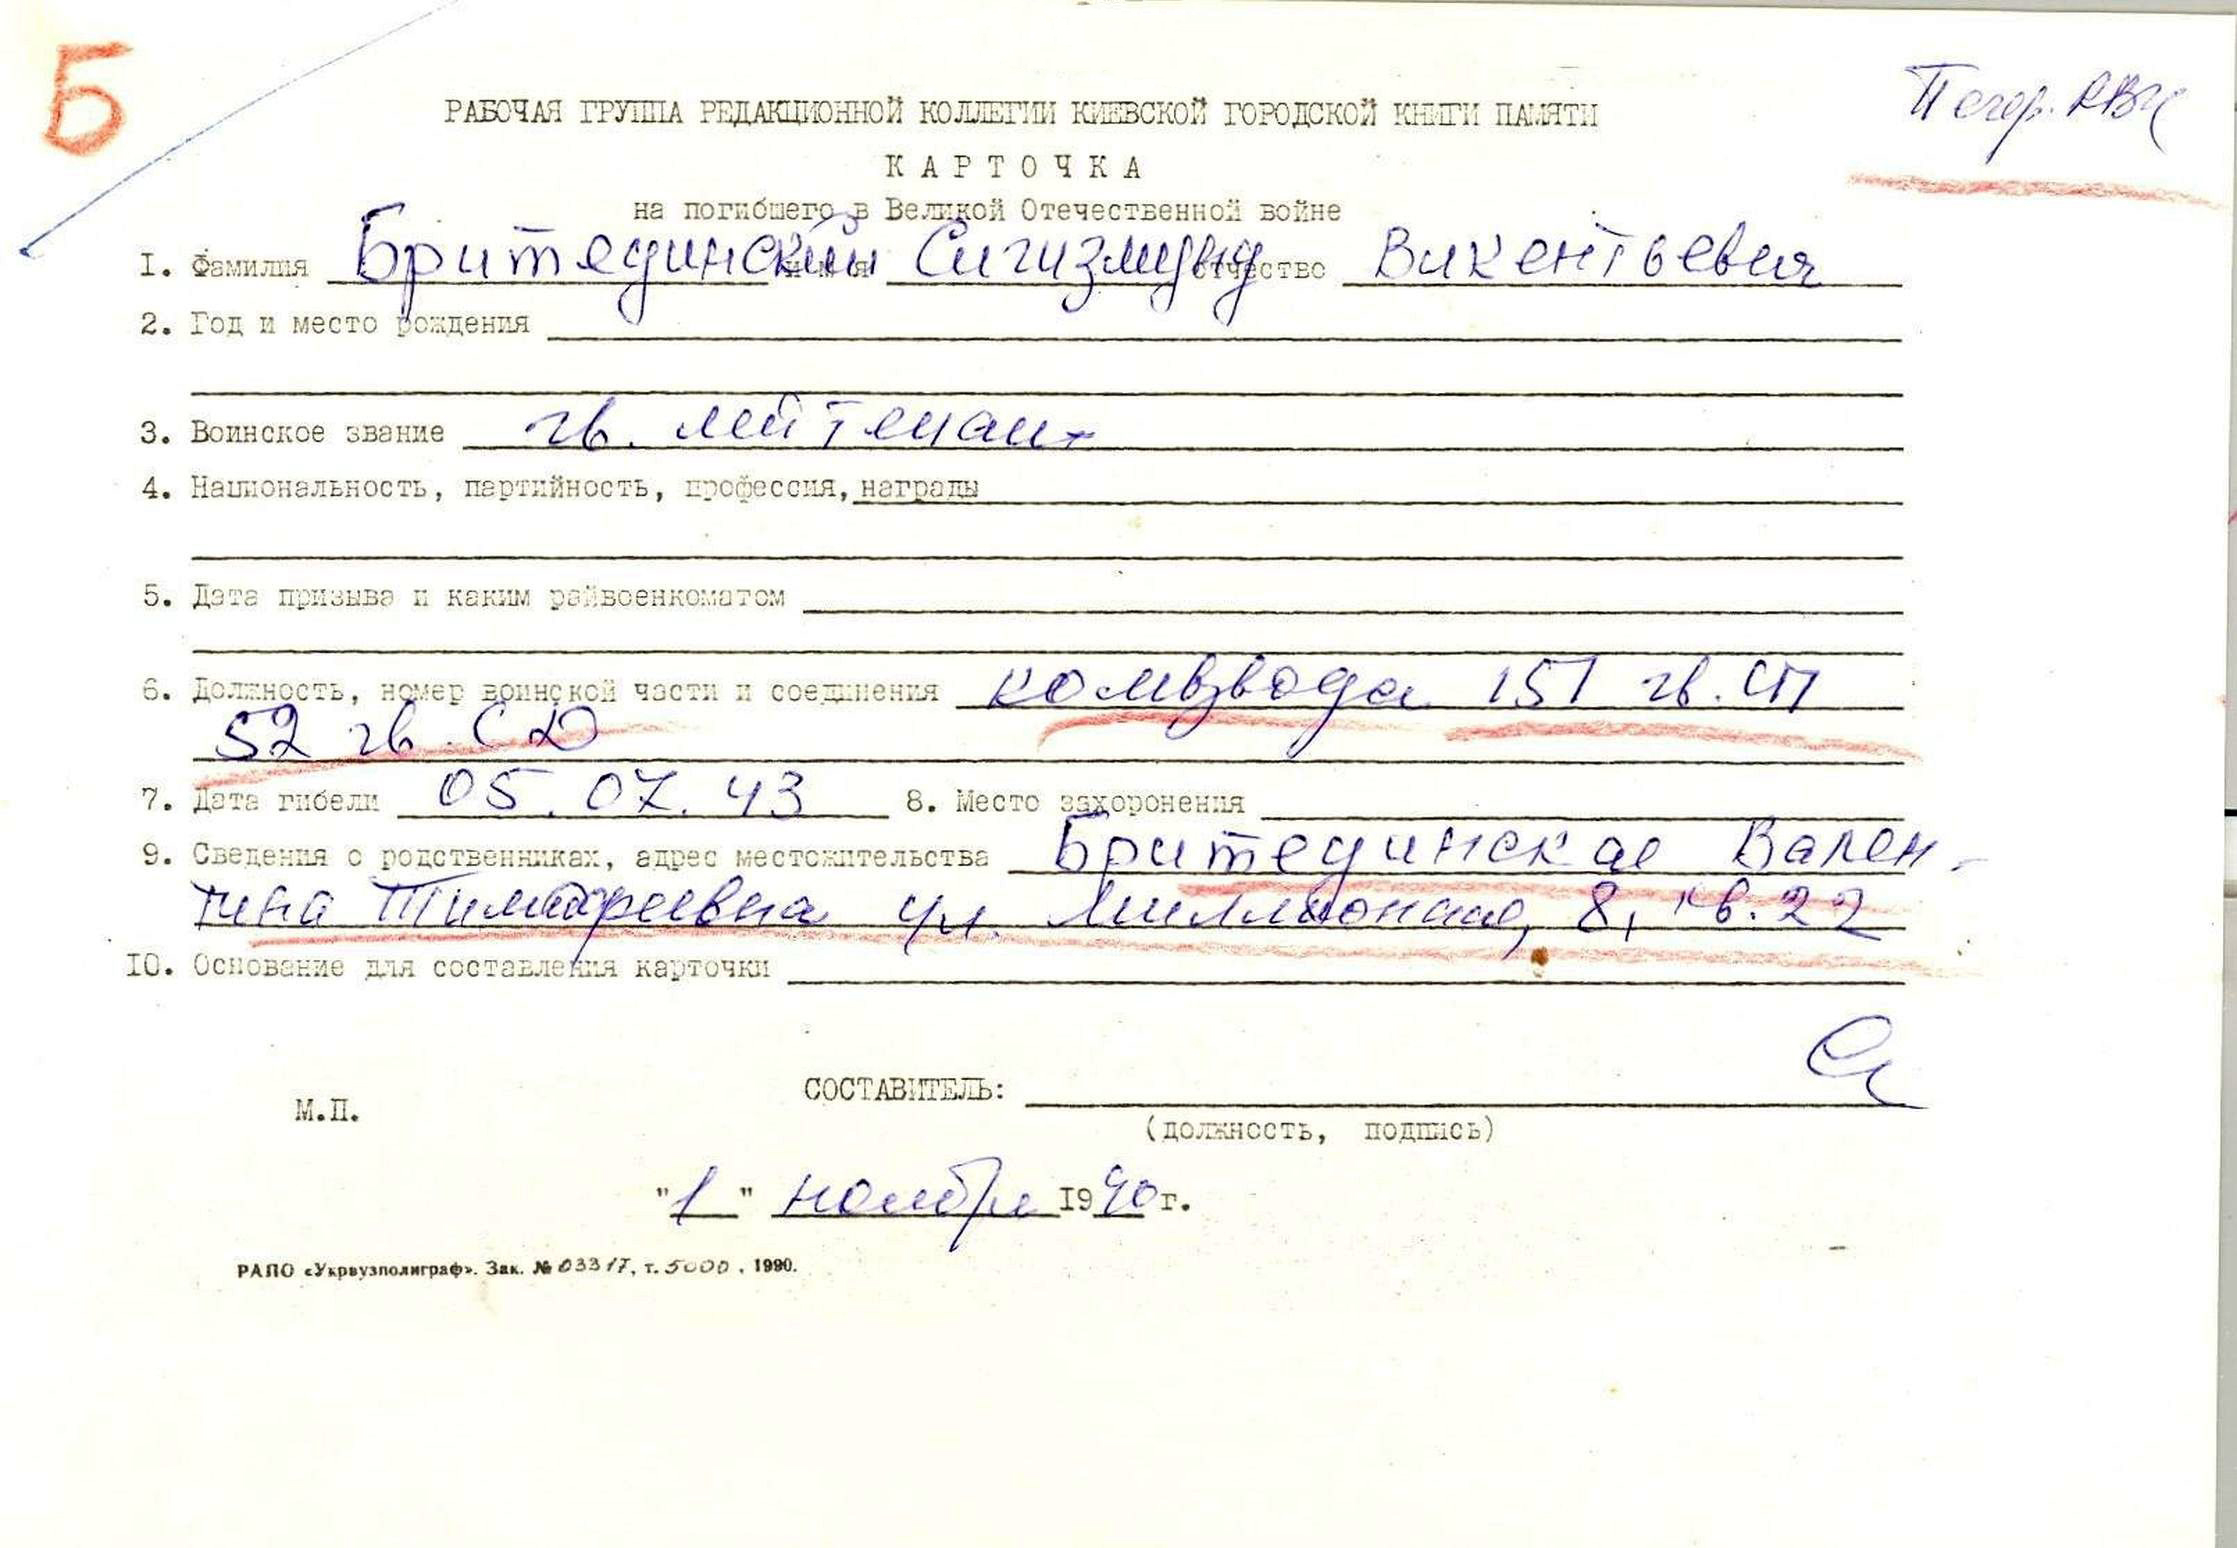 Б
РАБОЧАЯ ГРУППА РЕДАКЦИОННОЙ КОЛЛЕГИИ КИЕВСКОЙ ГОРОДСКОЙ КНИГИ ПАМЯТИ
КАРТОЧКА
на погибшего в Великой Отечественной войне
1. Фамилия Бритединский имя Сигизмунд отчество Викентьевич
2. Год и место рождения
3. Воинское звание гв. лейтенант
4. Национальность, партийность, профессия, награды
5. Дата призыва и каким райвоенкоматом
6. Должность, номер воинской части и соединения комвзвода 151 гв. СП
52 гв. СД
7. Дата гибели 05.07.43 8. Место захоронения
9. Сведения о родственниках, адрес местожительства Бритединская Вален-
тина Тимофеевна ул. Миллионная, 8, кв. 22
10. Основание для составления карточки
СОСТАВИТЕЛЬ:
М.П.
(должность, подпись)
"1" ноября 1990 г.
РАПО «Укрвузполиграф». Зак. № 03317, т. 5000, 1990.